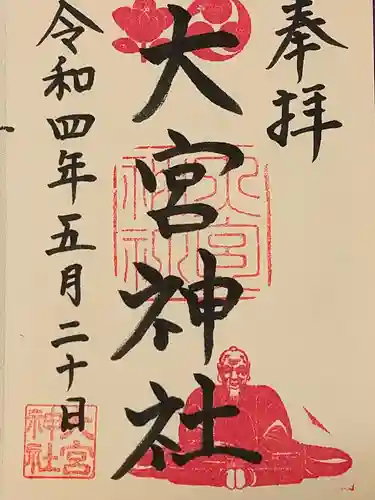 奉拝
大宮神社
大宮神社
令和四年五月二十日
大宮神社